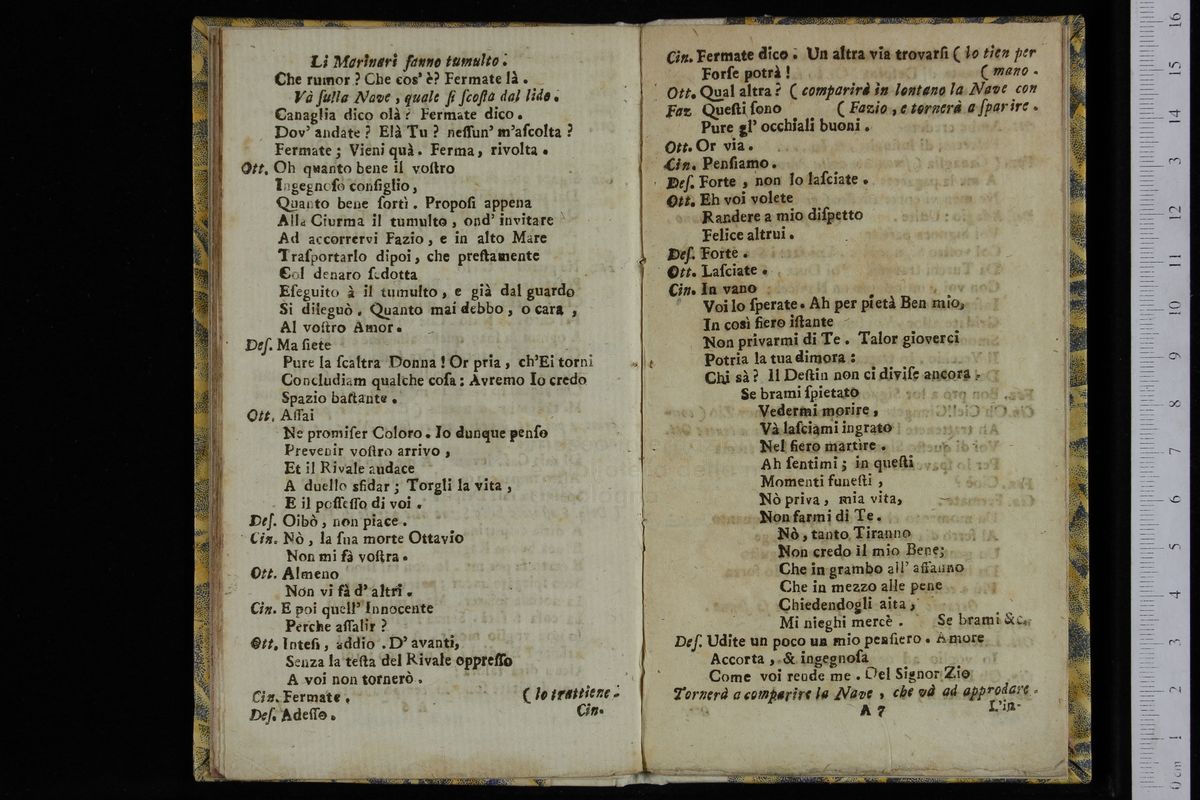 Li Marinari fanno tumulto.
Che rumor? Che cos' è? Fermate là.
Và ſulla Nave, quale ſi ſcoſta dal lido.
Canaglia dico olà? Fermate dico.
Dov' andate? Elà Tu? neſſun' m'aſcolta?
Fermate; Vieni quà. Ferma, rivolta.
Ott. Oh quanto bene il voſtro
Ingegnoſo conſiglio,
Quanto bene ſortì. Propoſi appena
Alla Ciurma il tumulto, ond' invitare
Ad accorrervi Fazio, e in alto Mare
Traſportarlo dipoi, che preſtamente
Col denaro ſedotta
Eſeguito à il tumulto, e già dal guardo
Si dileguò. Quanto mai debbo, o cara,
Al voſtro Amor.
Deſ. Ma ſiete
Pure la ſcaltra Donna! Or pria, ch'Ei torni
Concludiam qualche coſa: Avremo Io credo
Spazio baſtante.
Ott. Aſſai
Ne promiſer Coloro. Io dunque penſo
Prevenir voſtro arrivo,
Et il Rivale audace
A duello sfidar; Torgli la vita,
E il poſſeſſo di voi.
Deſ. Oibò, non piace.
Cin. Nò, la ſua morte Ottavio
Non mi fà voſtra.
Ott. Almeno
Non vi fà d'altri.
Cin. E poi quell' Innocente
Perche aſſalir?
Ott. Inteſi, addio. D'avanti,
Senza la teſta del Rivale oppreſſo
A voi non tornerò.
Cin. Fermate. (lo trattiene.
Deſ. Adeſſo. Cin.
Cin. Fermate dico. Un altra via trovarſi (lo tien per
Forſe potrà! (mano.
Ott. Qual altra? (comparirà in lontano la Nave con
Faz Queſti ſono (Fazio, e tornerà a ſparire.
Pure gl' occhiali buoni.
Ott. Or via.
Cin. Penſiamo.
Deſ. Forte, non lo laſciate.
Ott. Eh voi volete
Randere a mio diſpetto
Felice altrui.
Deſ. Forte.
Ott. Laſciate.
Cin. In vano
Voi lo ſperate. Ah per pietà Ben mio,
In così fiero iſtante
Non privarmi di Te. Talor gioverci
Potria la tua dimora:
Chi sà? Il Deſtin non ci diviſe ancora.
Se brami ſpietato
Vedermi morire,
Và laſciami ingrato
Nel fiero martire.
Ah ſentimi; in queſti
Momenti funeſti,
Nò priva, mia vita,
Non farmi di Te.
Nò, tanto Tiranno
Non credo il mio Bene;
Che in grambo all' affanno
Che in mezzo alle pene
Chiedendogli aita,
Mi nieghi mercè. Se brami &c.
Deſ. Udite un poco un mio penſiero. Amore
Accorta, & ingegnoſa
Come voi rende me. Del Signor Zio
Tornerà a comparire la Nave, che và ad approdare.
A 7 L'in-